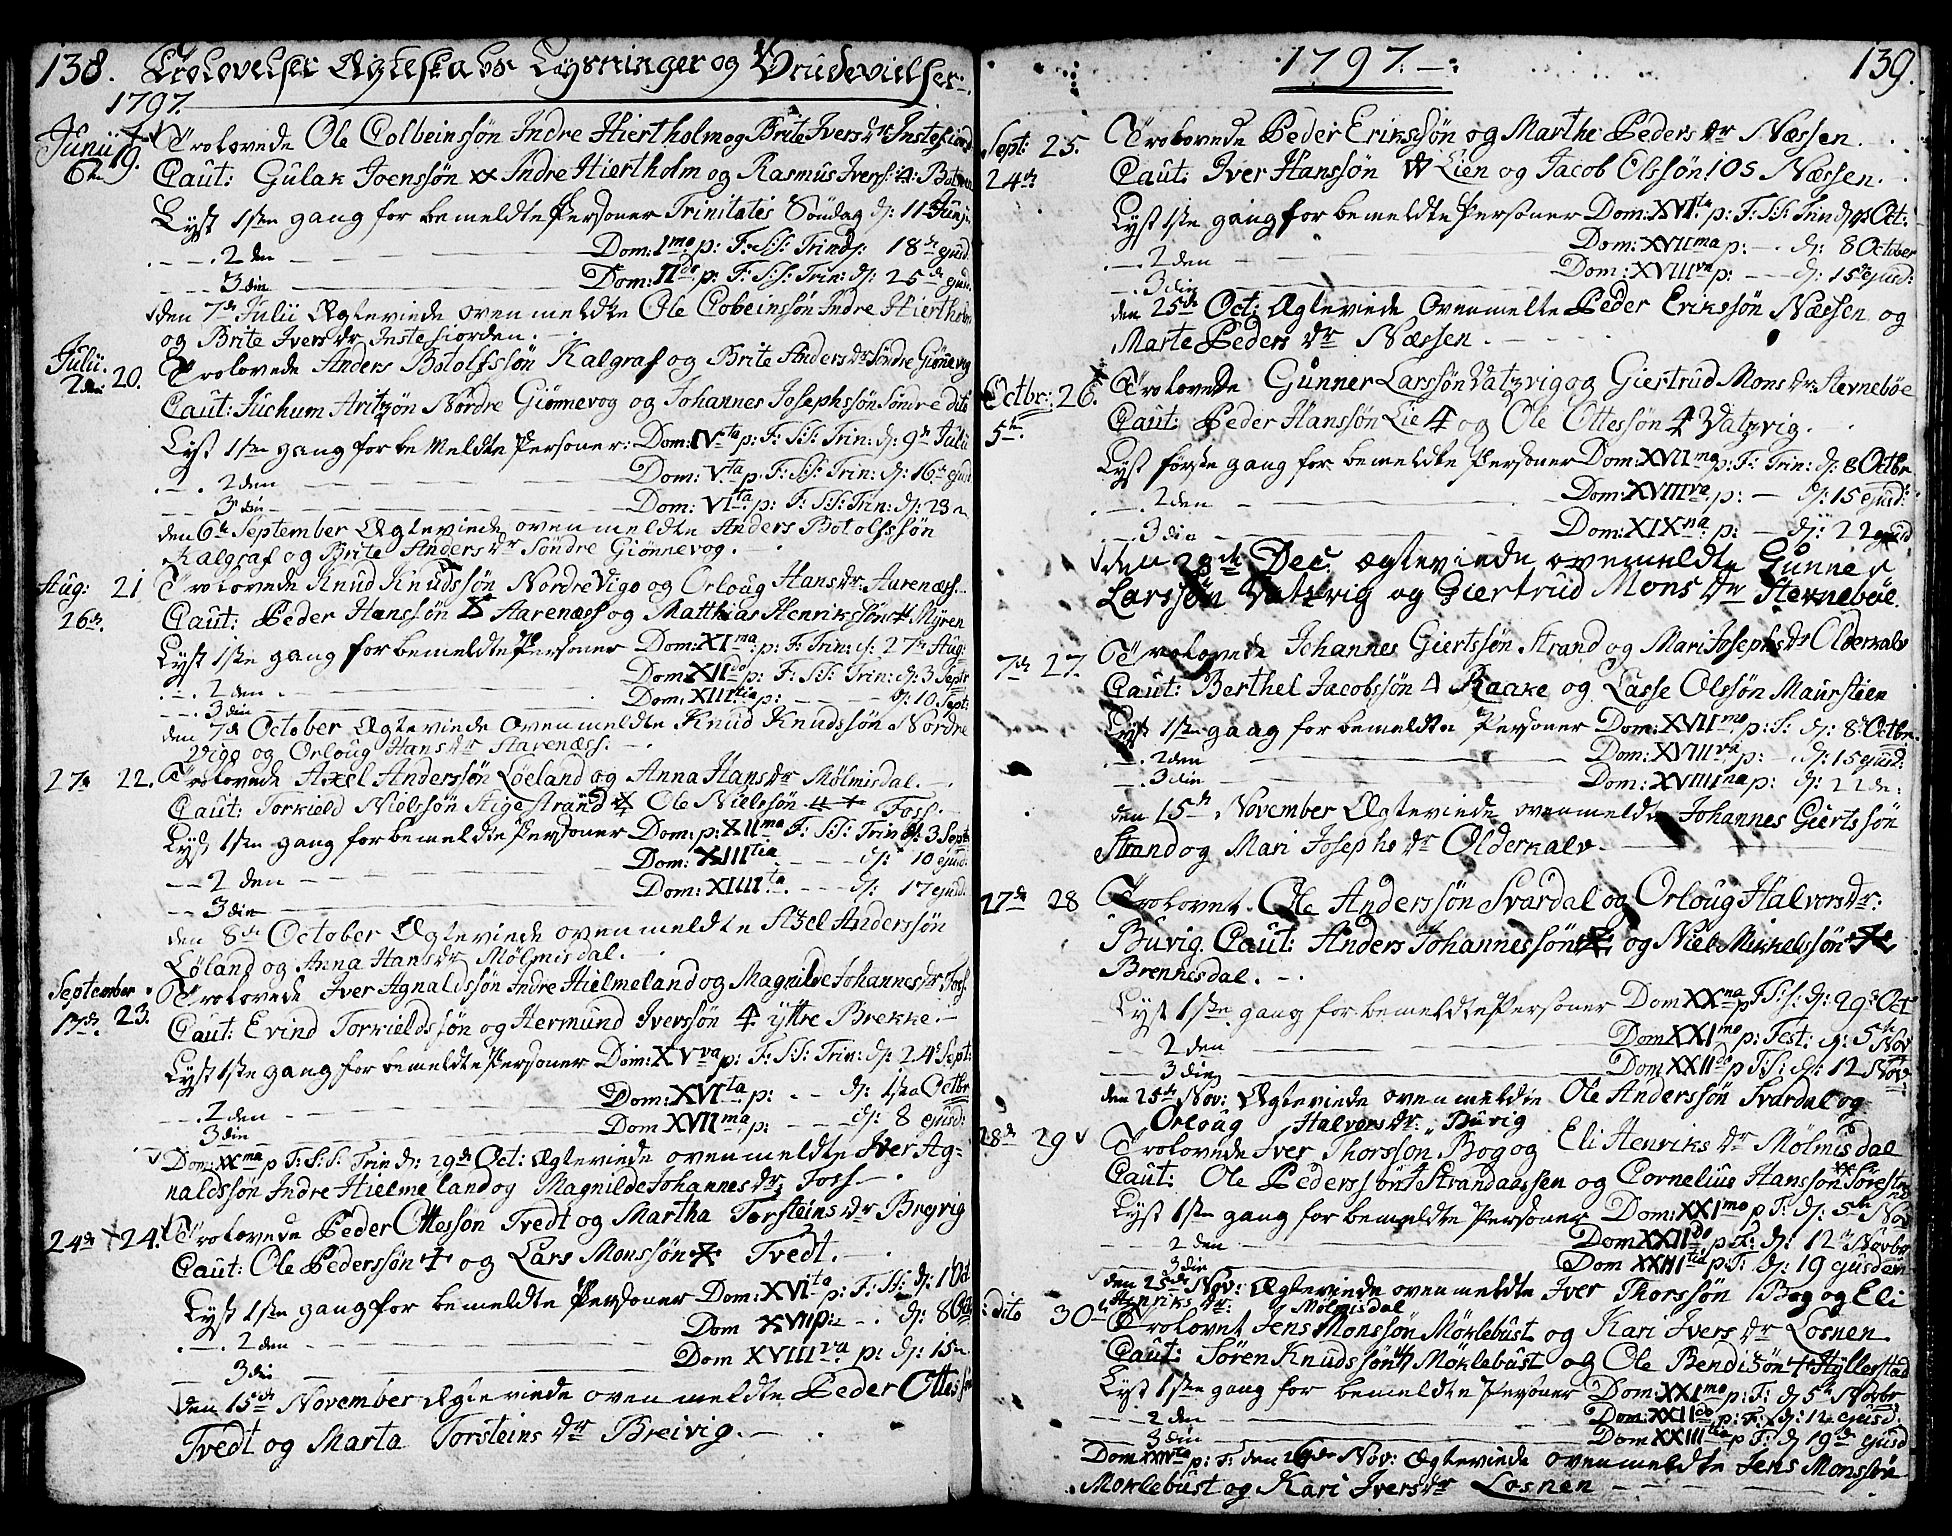 138. Trolovelser Ægteskabs Lysninger og Brudevielser.
1797.
Junii 19. Trolovede Ole Colbeinssøn Indre Hiertholm og Brite Ivers dr Instefiord
6te Caut: Gulak Joenssøn xx Indre Hiertholm og Rasmus Ivers: 4:
Lyst 1ste gang for bemeldte Personer Trinitatis Søndag d: 11te Junii
2den — Dom: 1mo p: F: S: S: Trin: d: 18de ejusd:
3die — Dom: IIdo p: F: S: S: Trin: d: 25de ejusd:
den 7de Julii Ægteviede ovenmeldte Ole Cobeinssøn Indre Hiertholm
og Brite Ivers dr Instefiorden.
Julii. 20. Trolovede Anders Botolfssøn Kalgraf og Brite Anders dr Søndre Giønnevog
2den Caut: Juchum Aritzøn Nørdre Giønnevog og Johannes Josephssøn Søndre dito
Lyst 1ste gang for be meldte Personer: Dom: IVta p: F: S: S: Trin: d: 9de Julii
2den — Dom: Vta p: F: S: S: Trin: d: 16de ejusd
3die — Dom: VIta p: F: S: S: Trin: d: 23de
den 6te September Ægteviede ovenmeldte Anders Botolfssøn
Kalgraf og Brite Anders dr Søndre Giønnevog.
Aug: 21 Trolovede Knud Knudssøn Nordre Vigo og Orloug Hans dr Aarenæs.
26de Caut: Peder Hanssøn Aarenæss og Matthias Henrikssøn Myren
Lyst 1ste gang for bemeldte Personer Dom: XIma p: F: Trin: d: 27de Aug:
2den — Dom: XIIdo p: F: S: S: Trin: d: 3 Septr
3die — Dom: XIIItia p: — d: 10 Sept:
den 7de October Ægteviede ovenmeldte Knud Knudssøn Nordre
Vigo og Orloug Hans dr Aarenæss.
27de 22. Trolovede Axel Anderssøn Løeland og Anna Hans dr Mølmisdal.
Caut: Torkield Nielssøn Stigestrand Ole Nielssøn Foss.
Lyst 1ste gang for bemeldte Personer Dom: p: XIIma F: S: S: Trin d: 3 Septr
2den — Dom: XIIItia — d: 10 ejusd:
3die — Dom: XIIIIta. — d: 17 ejusd:
den 8de October Ægteviede ovenmeldte Axel Anderssøn
Løland og Anna Hans dr Mølmisdal.
September 23. Trolovede Iver Agnaldssøn Indre Hielmeland og Magnilde Johannes dr Foss.
17de Caut: Evind Torkieldssøn og Hermund Iverssøn 4 yttre Brekke.
Lyst 1ste gang for bemeldte Personer Dom: XVva p: F: S: S: Trin: d: 24de Sept:
2den — Dom: XVIta p: — d: 1ste Octbr
3die — Dom XVIIma p: — d: 8 ejusd:
Dom: XXma p F: S: S: Trin d: 29de Oct: Ægteviede ovenmeldte Iver Ag-
naldssøn Indre Hielmeland og Magnilde Johannes dr Foss
24de 24. Trolovede Peder Ottessøn Tvedt og Martha Torsteins dr Breivig
Caut: Ole Pederssøn og Lars Monssøn Tvedt.
Lyst 1ste gang for bemeldte Personer Dom: XVIta p: F: S: d: 1 Oct
2den — Dom XVII p: — d: 8 Oct
3die — Dom XVIIIva p: d: 15de
den 15de November Ægteviede ovenmeldte Peder Ottessøn
Tvedt og Marta Torsteins dr Breivig.
1797. 139.
Sept: 25. Trolovede Peder Erikssøn og Marthe Peders dr Næssen.
24de Caut: Iver Hanssøn Lien og Jacob Olssøn 105 Næssen.
Lyst 1ste gang for bemeldte Personer Dom: XVIta p: F: S: S: Trin d: 1 Oct:
2den — Dom: XVIIma p: — d: 8 October
3die — Dom: XVIIIva p: — d: 15de ejusd:
den 25de Oct: Ægteviede Ovenmelte Peder Erikssøn Næssen og
Marte Peders dr Næssen.
Octbr: 26. Trolovede Gunner Larssøn Vatzvig og Giertrud Mons dr Stevnebøe
5te Caut: Peder Hanssøn Lie 4 og Ole Ottessøn 4 Vatzvig.
Lyst første gang for bemeldte Personer Dom: XVIIma p: F: Trin: d: 8 Octbr
2den — Dom: XVIIIva p: — d: 15 ejusd:
3die — Dom: XIXna p: — d: 22 ejusd
den 28de Dec. Ægteviede ovemeldte Gunner
Larssøn Vatzvig og Giertrud Mons dr Stevnebøe.
7de 27. Trolovede Johannes Giertssøn Strand og Mari Josephs dr Olderkalv
Caut: Berthel Jacobssøn 4 Raake og Lasse Olssøn Maursteen
Lyst 1ste gaag for bemeldte Personer Dom: XVIImo p: F: d: 8 Octbr.
2den — Dom: XVIIIva p: — d: 15 ejusd:
3die — Dom: XVIIIIna p: d: 22de:
den 15de November Ægteviede ovenmeldte Johannes Giertssøn
Strand og Mari Josephs dr Olderkalv.
27de 28 Trolovet Ole Anderssøn Svardal og Orloug Halvors dr:
Buvig. Caut: Anders Johannessøn og Niels Mikkelssøn
Brennisdal.
Lyst 1ste gang for bemeldte Personer Dom XXna p F: S: d: 29de Oct
2den — Dom XXImo p: Fest: d: 5te Nov
3die — Dom XXIIdo p F: S: d: 12 Nov
den 25de Nov: Ægteviede ovenmeldte Ole Anderssøn Svardal og
Orloug Halvors dr: Buvig
28de 29 Trolovede Iver Thorssøn Bog og Eli Henriks dr Mølmisdal
Caut: Ole Pederssøn Strandaassen og Cornelius Hanssøn Sørestrand
Lyst 1ste gang for bemeldte Personer Dom: XXImo p F: d: 5te Nov
2den — Dom XXIIdo p F: d: 12te Novbr
3die — Dom XXIIItia p F: d: 19 ejusdem
den 25de Nov: Ægteviede ovenmeldte Iver Thorssøn Bog og Eli
Henriks dr: Mølmisdal
dito 30 Trolovet Jens Monssøn Møklebust og Kari Ivers dr Losnen
Caut: Søren Knudssøn Møklebust og Ole Bendixøn Hyllestad
Lyst 1ste gang for bemeldte Personer Dom: XXImo p: F: d 5te Novbr
2den — Dom: XXIIdo p: F: d: 12 ejusd.
3die — Dom XXIIItia p F: d 19de ejusd
Dom XXIVta p: F: den 26de Nov: Ægteviede ovenmeldte Jens Monssøn
Moklebust og Kari Ivers dr Losnen